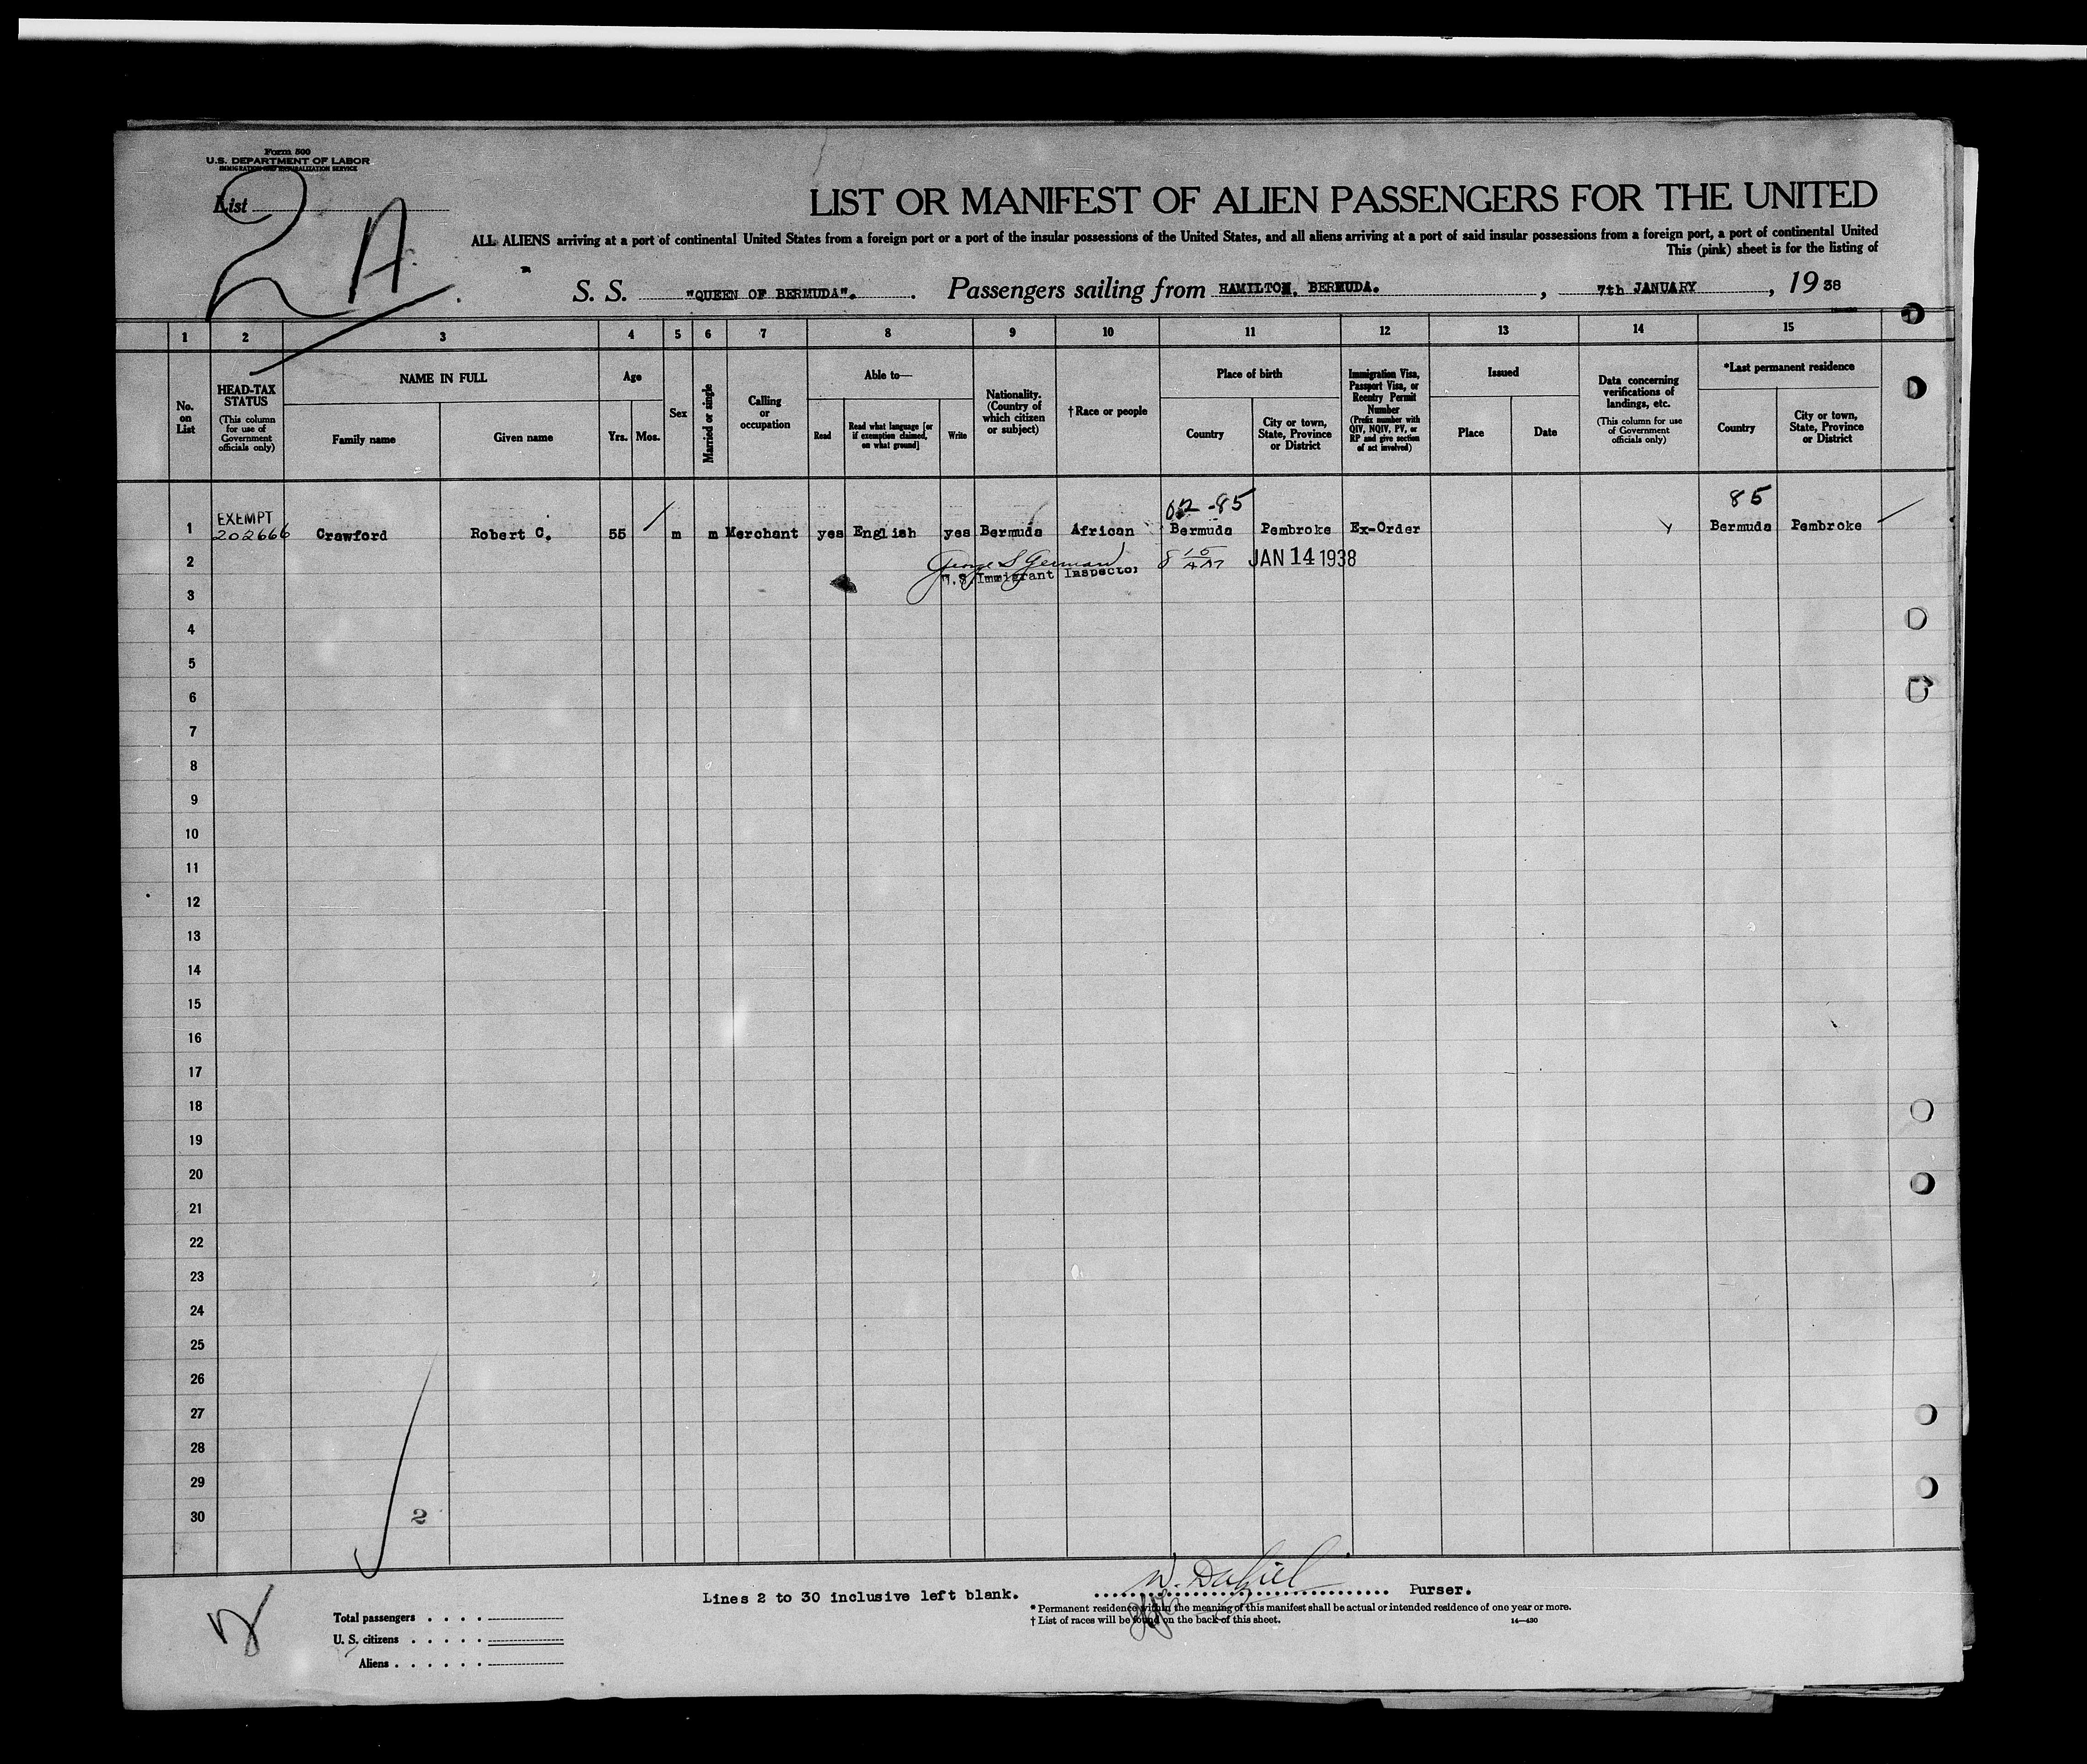 Form 500
U.S. DEPARTMENT OF LABOR
IMMIGRATION AND NATURALIZATION SERVICE
List
2 A
LIST OR MANIFEST OF ALIEN PASSENGERS FOR THE UNITED
ALL ALIENS arriving at a port of continental United States from a foreign port or a port of the insular possessions of the United States, and all aliens arriving at a port of said insular possessions from a foreign port, a port of continental United
This (pink) sheet is for the listing of
S. S. "QUEEN OF BERMUDA". Passengers sailing from HAMILTON, BERMUDA. , 7th JANUARY , 19 38
1 2 3 4 5 6 7 8 9 10 11 12 13 14 15
No. on List
HEAD-TAX STATUS (This column for use of Government officials only)
NAME IN FULL
Family name Given name
Age
Yrs. Mos.
Sex
Married or single
Calling or occupation
Able to—
Read
Read what language [or if exemption claimed, on what ground]
Write
Nationality. (Country of which citizen or subject)
†Race or people
Place of birth
Country
City or town, State, Province or District
Immigration Visa, Passport Visa, or Reentry Permit Number (Prefix number with QIV, NQIV, PV, or RP and give section of act involved)
Issued
Place Date
Data concerning verifications of landings, etc. (This column for use of Government officials only)
*Last permanent residence
Country
City or town, State, Province or District
85
EXEMPT
1 202666 Crawford Robert C. 55 m m Merchant yes English yes Bermuda African Bermuda Pembroke Ex-Order Bermuda Pembroke
2 George S German 8 15 AM JAN 14 1938
U.S. Immigrant Inspector
3
4
5
6
7
8
9
10
11
12
13
14
15
16
17
18
19
20
21
22
23
24
25
26
27
28
29
30
2
Lines 2 to 30 inclusive left blank. Purser.
Total passengers
U. S. citizens
Aliens
* Permanent residence within the meaning of this manifest shall be actual or intended residence of one year or more.
† List of races will be found on the back of this sheet. 14—430